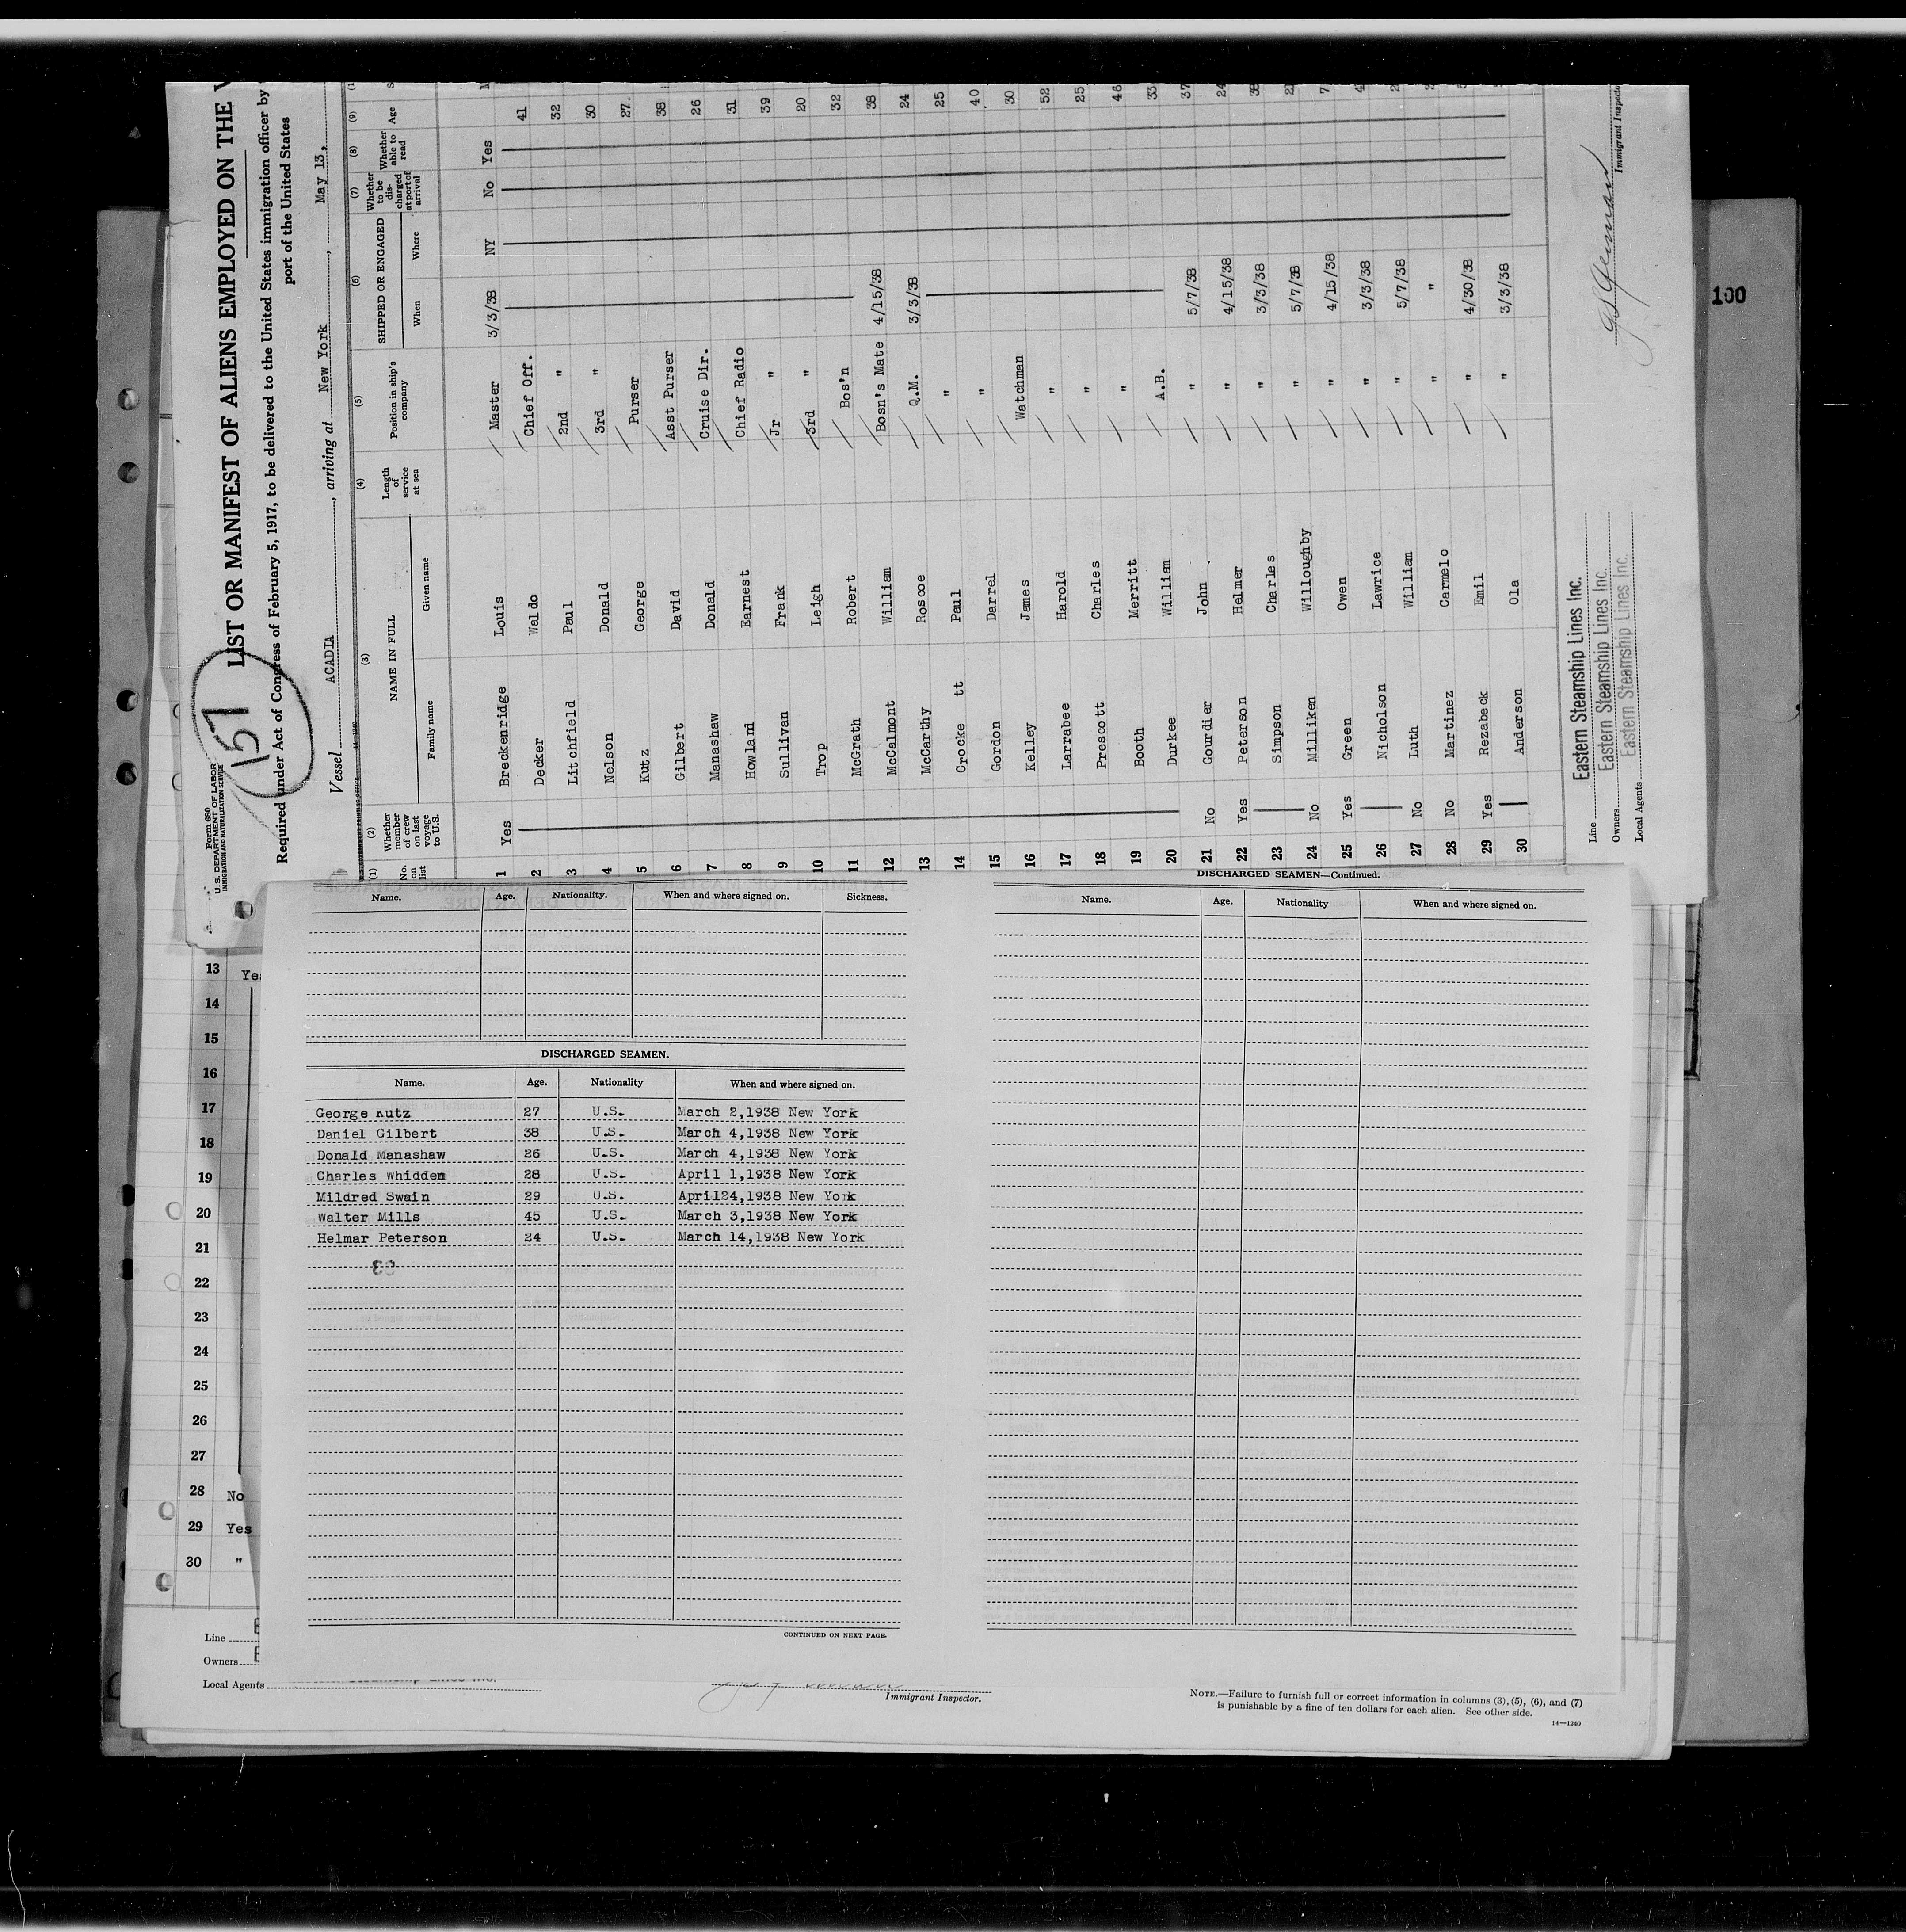 Form 680
U. S. DEPARTMENT OF LABOR
IMMIGRATION AND NATURALIZATION SERVICE
157
LIST OR MANIFEST OF ALIENS EMPLOYED ON THE
Required under Act of Congress of February 5, 1917, to be delivered to the United States immigration officer by
port of the United States
Vessel ACADIA, arriving at New York, May 13,
(1) (2) (3) (4) (5) (6) (7) (8) (9)
No. on list Whether member of crew on last voyage to U.S. NAME IN FULL Length of service at sea Position in ship's company SHIPPED OR ENGAGED Whether to be discharged at port of arrival Whether able to read Age
Family name Given name When Where
1 Yes Breckenridge Louis Master 3/3/38 NY No Yes
2 Decker Waldo Chief Off. 41
3 Litchfield Paul 2nd " 32
4 Nelson Donald 3rd " 30
5 Kutz George Purser 27
6 Gilbert David Asst Purser 38
7 Manashaw Donald Cruise Dir. 26
8 Howland Earnest Chief Radio 31
9 Sullivan Frank Jr " 39
10 Trop Leigh 3rd " 20
11 McGrath Robert Bos'n 32
12 McCalmont William Bosn's Mate 4/15/38 38
13 McCarthy Roscoe Q.M. 3/3/38 24
14 Crocke tt Paul " 25
15 Gordon Darrel " 40
16 Kelley James Watchman 30
17 Larrabee Harold " 52
18 Prescott Charles " 25
19 Booth Merritt " 46
20 Durkee William A.B. 33
21 No Gourdier John " 5/7/38 37
22 Yes Peterson Helmer " 4/15/38 24
23 Simpson Charles " 3/3/38 38
24 No Milliken Willoughby " 5/7/38
25 Yes Green Owen " 4/15/38
26 Nicholson Lawrice " 3/3/38
27 No Luth William " 5/7/38
28 No Martinez Carmelo " "
29 Yes Rezabeck Emil " 4/30/38
30 Anderson Ola " 3/3/38
Line Eastern Steamship Lines Inc.
Owners Eastern Steamship Lines Inc.
Local Agents Eastern Steamship Lines Inc.
Immigrant Inspector
100
Name. Age. Nationality. When and where signed on. Sickness.
DISCHARGED SEAMEN.
Name. Age. Nationality When and where signed on.
George Kutz 27 U.S. March 2,1938 New York
Daniel Gilbert 38 U.S. March 4,1938 New York
Donald Manashaw 26 U.S. March 4,1938 New York
Charles Whidden 28 U.S. April 1,1938 New York
Mildred Swain 29 U.S. April24,1938 New York
Walter Mills 45 U.S. March 3,1938 New York
Helmar Peterson 24 U.S. March 14,1938 New York
CONTINUED ON NEXT PAGE.
DISCHARGED SEAMEN—Continued.
Name. Age. Nationality When and where signed on.
13
14
15
16
17
18
19
20
21
22
23
24
25
26
27
28 No
29 Yes
30 "
Line
Owners
Local Agents
Immigrant Inspector.
NOTE.—Failure to furnish full or correct information in columns (3), (5), (6), and (7)
is punishable by a fine of ten dollars for each alien. See other side.
14—1240